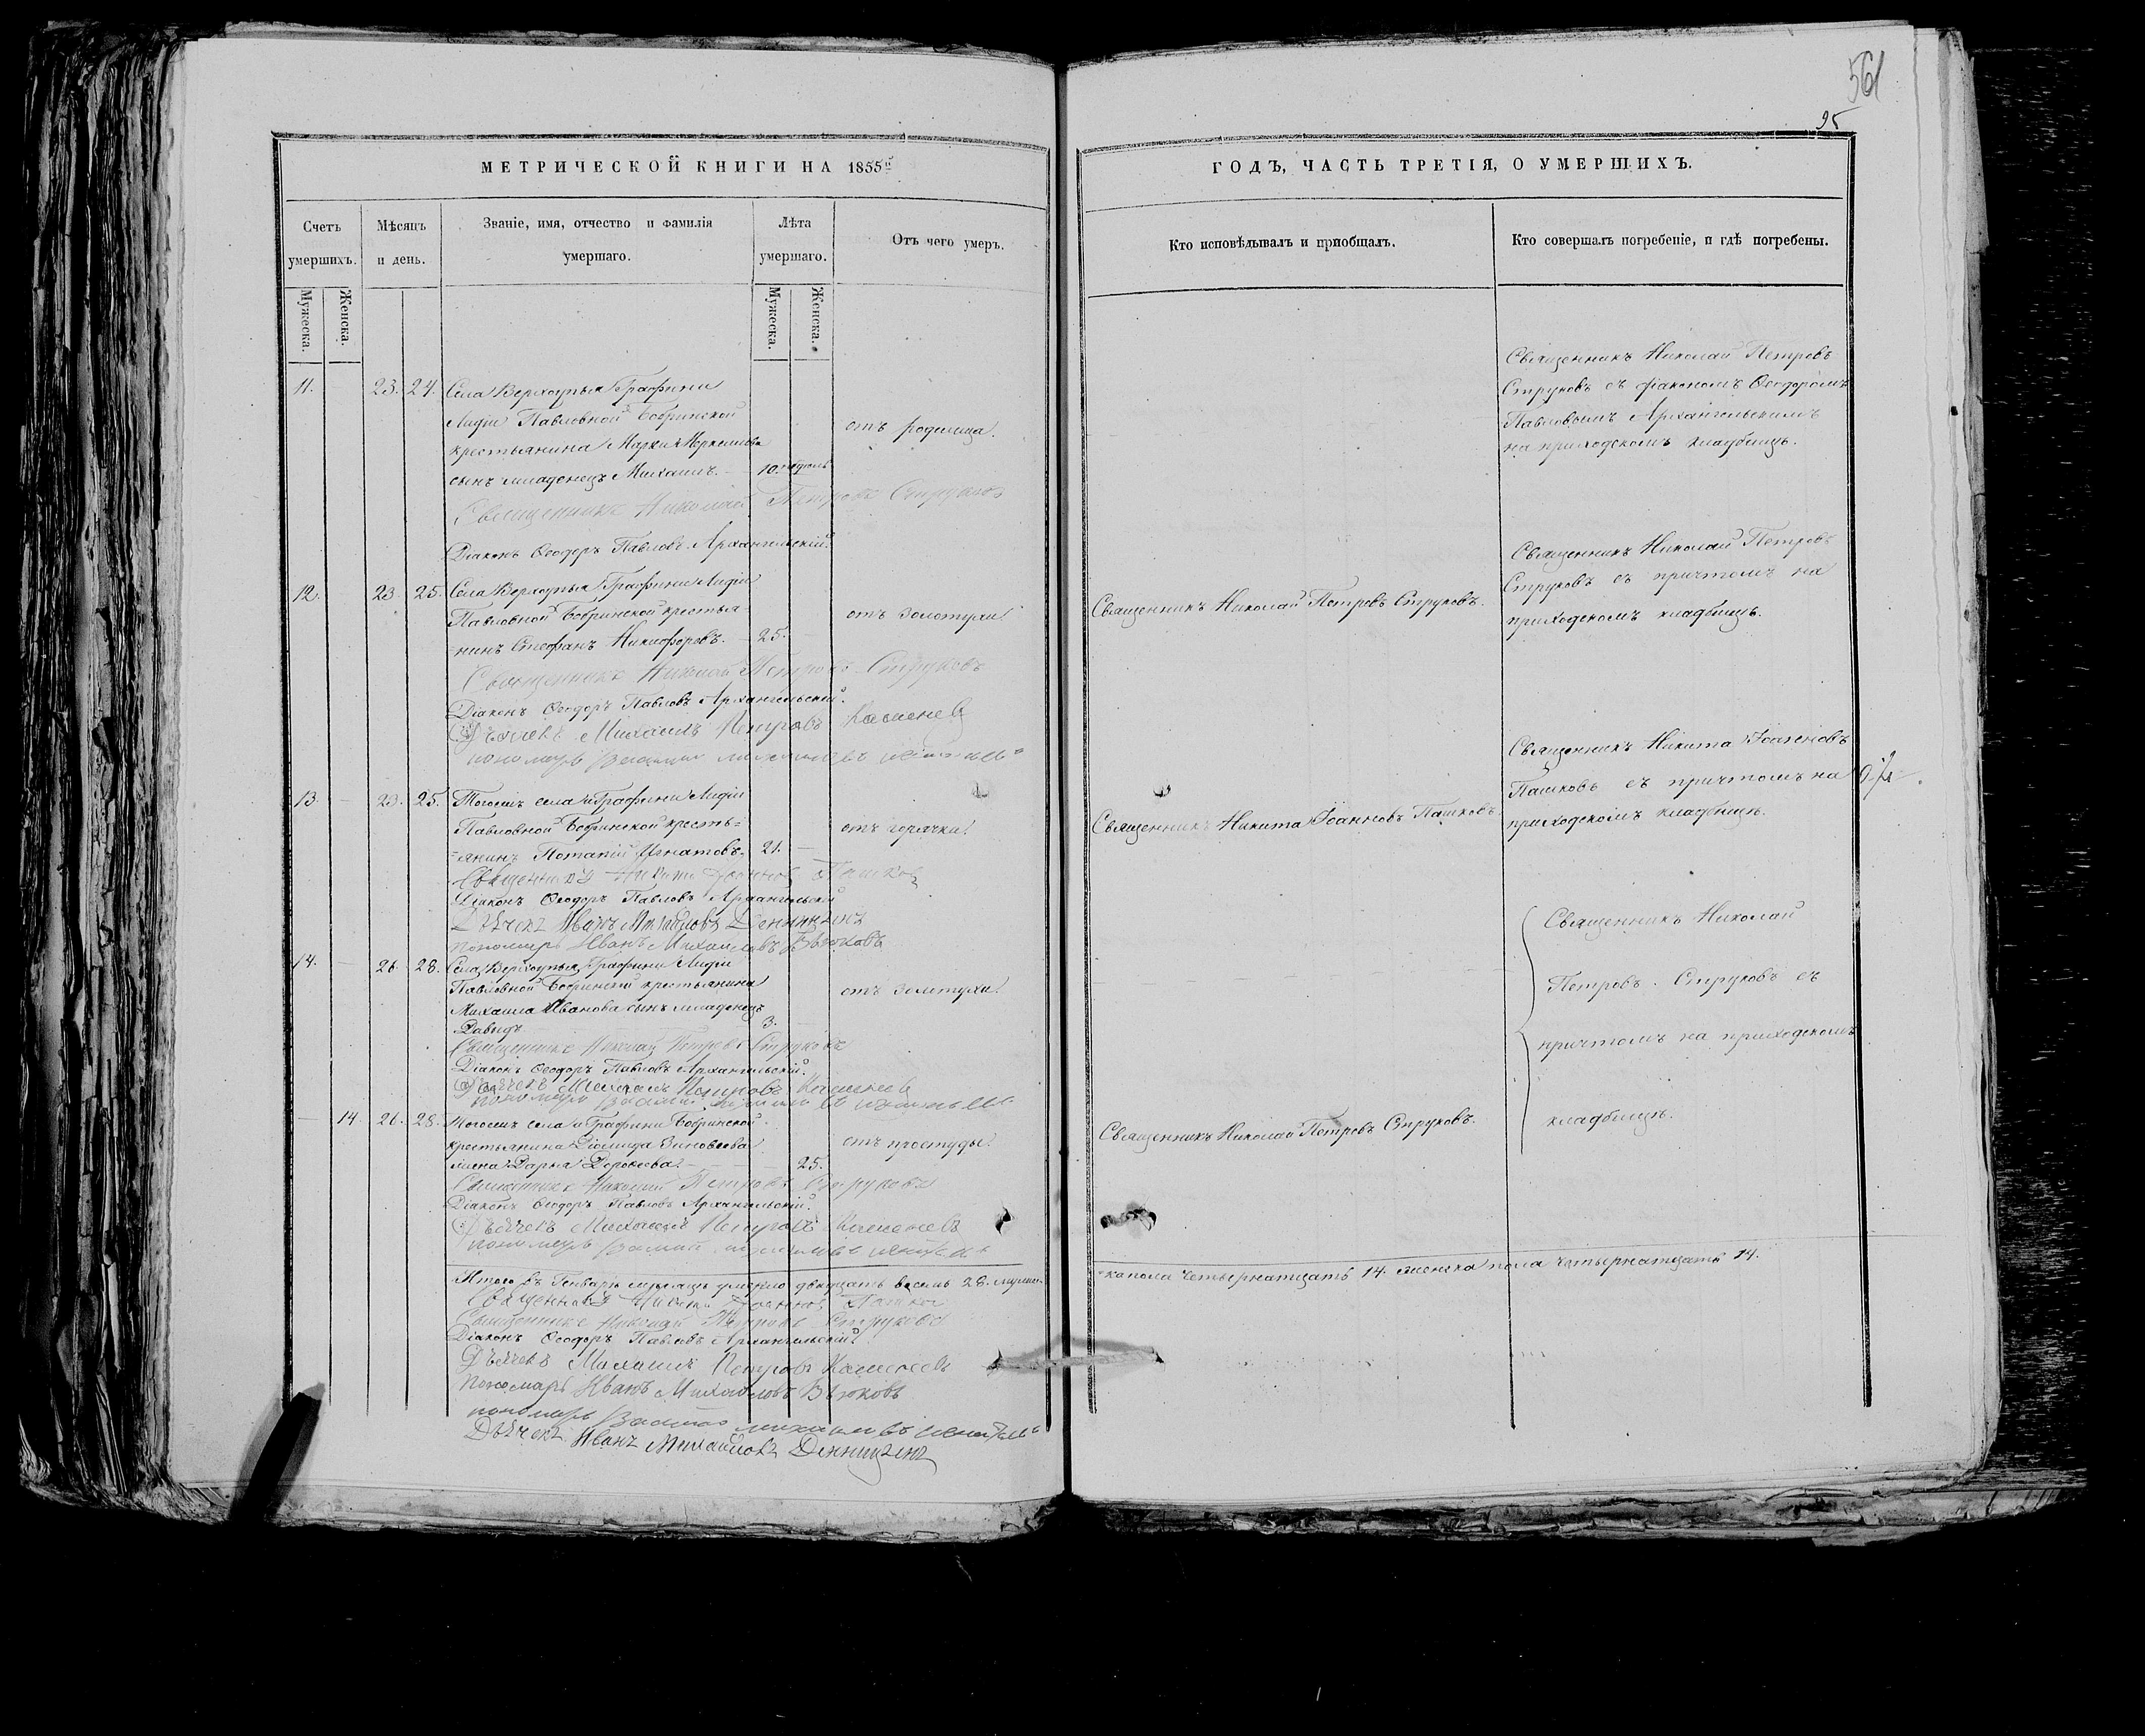 561
95
МЕТРИЧЕСКОЙ КНИГИ НА 1855й
ГОДЪ, ЧАСТЬ ТРЕТІЯ, О УМЕРШИХЪ.
Счетъ умершихъ.
Мѣсяцъ и день.
Званіе, имя, отчество и фамилія
умершаго.
Лѣта умершаго.
Отъ чего умеръ.
Кто исповѣдывалъ и пріобщалъ.
Кто совершалъ погребеніе, и гдѣ погребены.
Мужеска.
Женска.
Мужеска.
Женска.
11. 23. 24. Села Верхоупья Графини
Лидіи Павловной Бобринской
крестьянина
сынъ младенецъ Михаилъ. 10. недѣль
отъ родимца.
Священникъ Николай Петровъ
Струковъ съ діакономъ Ѳеодоромъ
Павловымъ Архангельскимъ
на приходскомъ кладбищѣ.
Священникъ Николай Петровъ Струковъ
Діаконъ Ѳеодоръ Павловъ Архангельскій.
12. 23. 25. Села Верхоупья Графини Лидіи
Павловной Бобринской крестья-
=нинъ Стефанъ Никифоровъ. 25.
отъ золотухи.
Священникъ Николай Петровъ Струковъ.
Священникъ Николай Петровъ
Струковъ съ причтомъ на
приходскомъ кладбищѣ.
Священникъ Николай Петровъ Струковъ
Діаконъ Ѳеодоръ Павловъ Архангельскій.
Дьячекъ Михаилъ Петровъ
пономарь
13. 23. 25. Тогожъ села и Графини Лидіи
Павловной Бобринской кресть=
=янинъ Потапій Игнатовъ. 21.
отъ горячки.
Священникъ Никита Іоанновъ Пашковъ
Священникъ Никита Іоанновъ
Пашковъ съ причтомъ на
приходскомъ кладбищѣ.
Священникъ Никита Іоанновъ Пашковъ
Діаконъ Ѳеодоръ Павловъ Архангельскій
Дьячекъ Иванъ Михайловъ
пономарь Иванъ Михаиловъ
14. 26. 28. Села Верхоупья Графини Лидіи
Павловной Бобринской крестьянина
Михаила Иванова сынъ младенецъ
Давыдъ 3.
отъ золотухи.
Священникъ Николай
Петровъ Струковъ съ
причтомъ на приходскомъ
кладбищѣ.
Священникъ Николай Петровъ Струковъ
Діаконъ Ѳеодоръ Павловъ Архангельскій.
Дьячекъ Михаилъ Петровъ
пономарь
14. 26. 28. Тогожъ села и Графини Бобринской
крестьянина Діомида Зиновьева
жена Дарья Дороѳеева 25.
отъ простуды.
Священникъ Николай Петровъ Струковъ.
Священникъ Николай Петровъ Струковъ
Діаконъ Ѳеодоръ Павловъ Архангельскій.
Дьячекъ Михаилъ Петровъ
пономарь
Итого въ Генварѣ мѣсяцѣ умерло двадцать восемь 28. мужес-
=ка пола четырнатцать 14. женска пола четырнатцать 14.
Священникъ Никита Іоанновъ Пашковъ
Священникъ Николай Петровъ Струковъ
Діаконъ Ѳеодоръ Павловъ Архангельскій
Дьячекъ Михаилъ Петровъ
Пономарь Иванъ Михайловъ
пономарь
Дьячекъ Иванъ Михайловъ